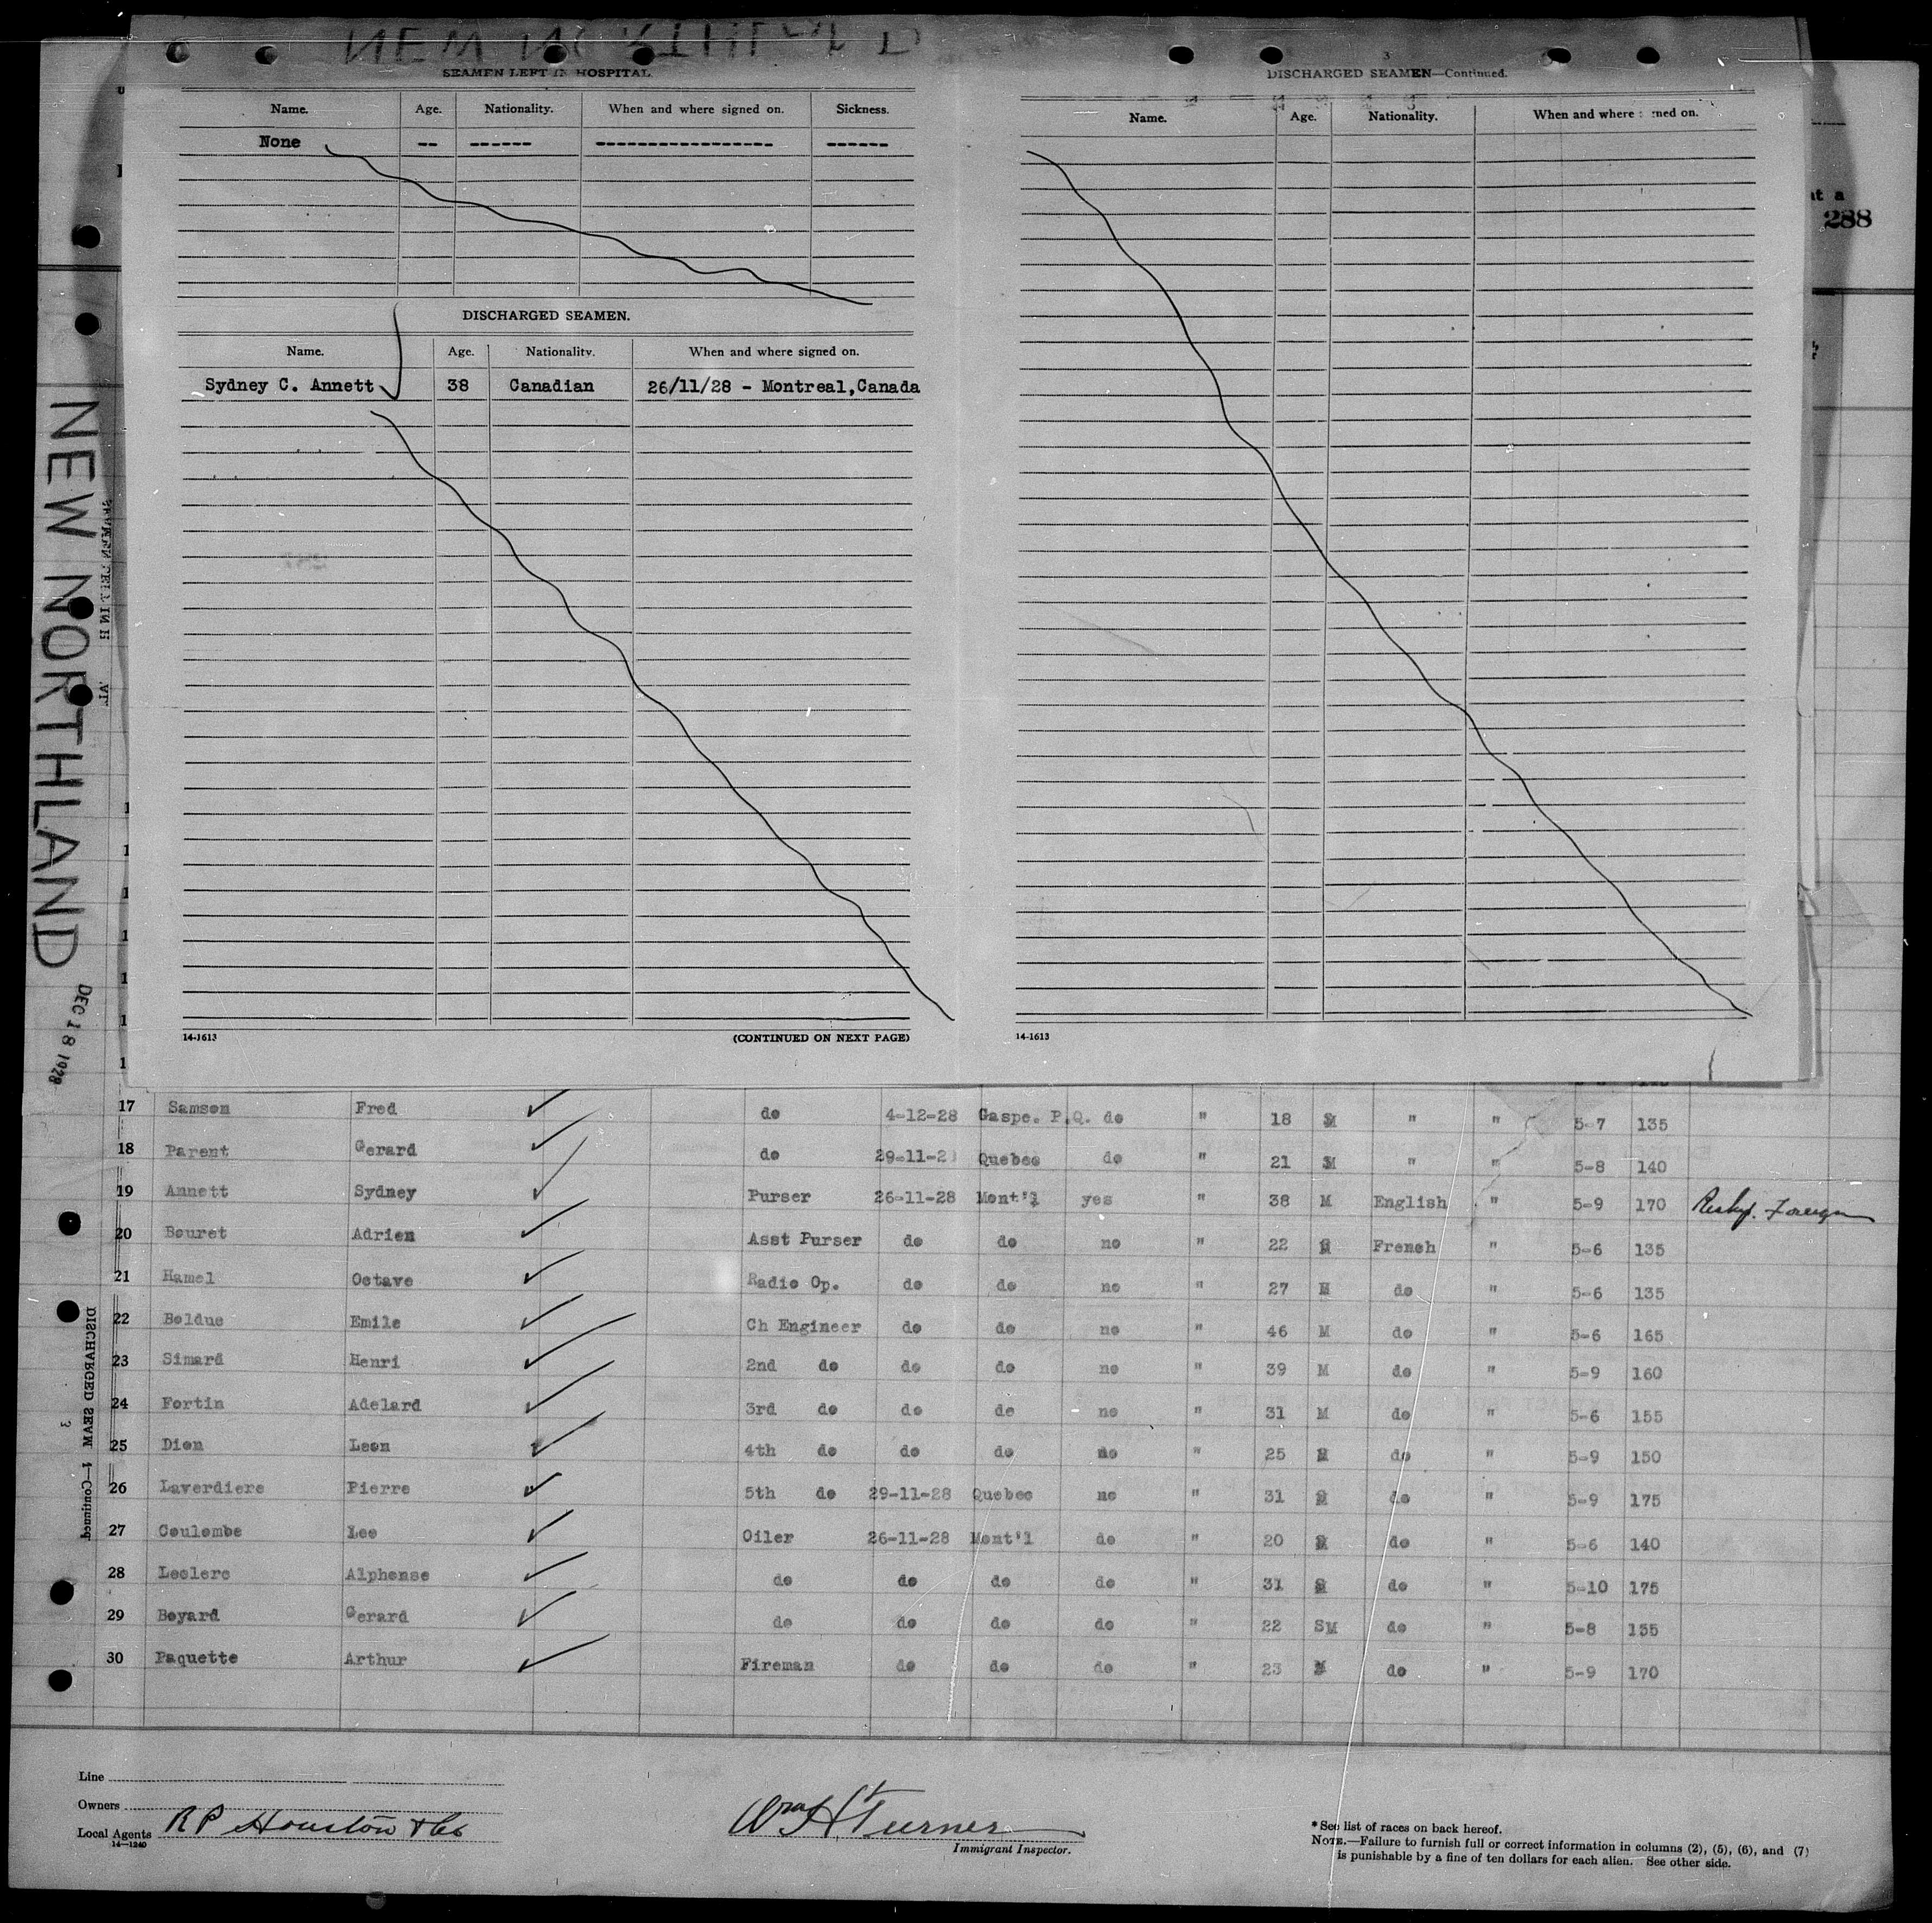 SEAMEN LEFT IN HOSPITAL.
Name. Age. Nationality. When and where signed on. Sickness.
None -- ------ ----------------- ------
DISCHARGED SEAMEN.
Name. Age. Nationality. When and where signed on.
Sydney C. Annett 38 Canadian 26/11/28 - Montreal,Canada
14-1613 (CONTINUED ON NEXT PAGE)
3
DISCHARGED SEAMEN—Continued.
Name. Age. Nationality. When and where signed on.
14-1613
at a
288
NEW NORTHLAND
DEC 18 1928
17 Samson Fred do 4-12-28 Gaspe. P.Q. do " 18 M " " 5-7 135
18 Parent Gerard do 29-11-2 Quebec do " 21 M " " 5-8 140
19 Annett Sydney Purser 26-11-28 Mont'l yes " 38 M English " 5-9 170 Foreign
20 Bouret Adrien Asst Purser do do no " 22 French " 5-6 135
21 Hamel Octave Radio Op. do do no " 27 M do " 5-6 135
22 Bolduc Emile Ch Engineer do do no " 46 M do " 5-6 165
23 Simard Henri 2nd do do do no " 39 M do " 5-9 160
24 Fortin Adelard 3rd do do do no " 31 M do " 5-6 155
25 Dion Leon 4th do do do no " 25 do " 5-9 150
26 Laverdiere Pierre 5th do 29-11-28 Quebec no " 31 do " 5-9 175
27 Coulombe Leo Oiler 26-11-28 Mont'l do " 20 do " 5-6 140
28 Leclerc Alphonse do do do do " 31 do " 5-10 175
29 Boyard Gerard do do do do " 22 SM do " 5-8 155
30 Paquette Arthur Fireman do do do " 23 do " 5-9 170
DISCHARGED SEAM
—Continued
3
Line
Owners
Local Agents R P Houston & Co
14—1240
Wm H Turner
Immigrant Inspector.
*See list of races on back hereof.
NOTE.—Failure to furnish full or correct information in columns (2), (5), (6), and (7)
is punishable by a fine of ten dollars for each alien. See other side.